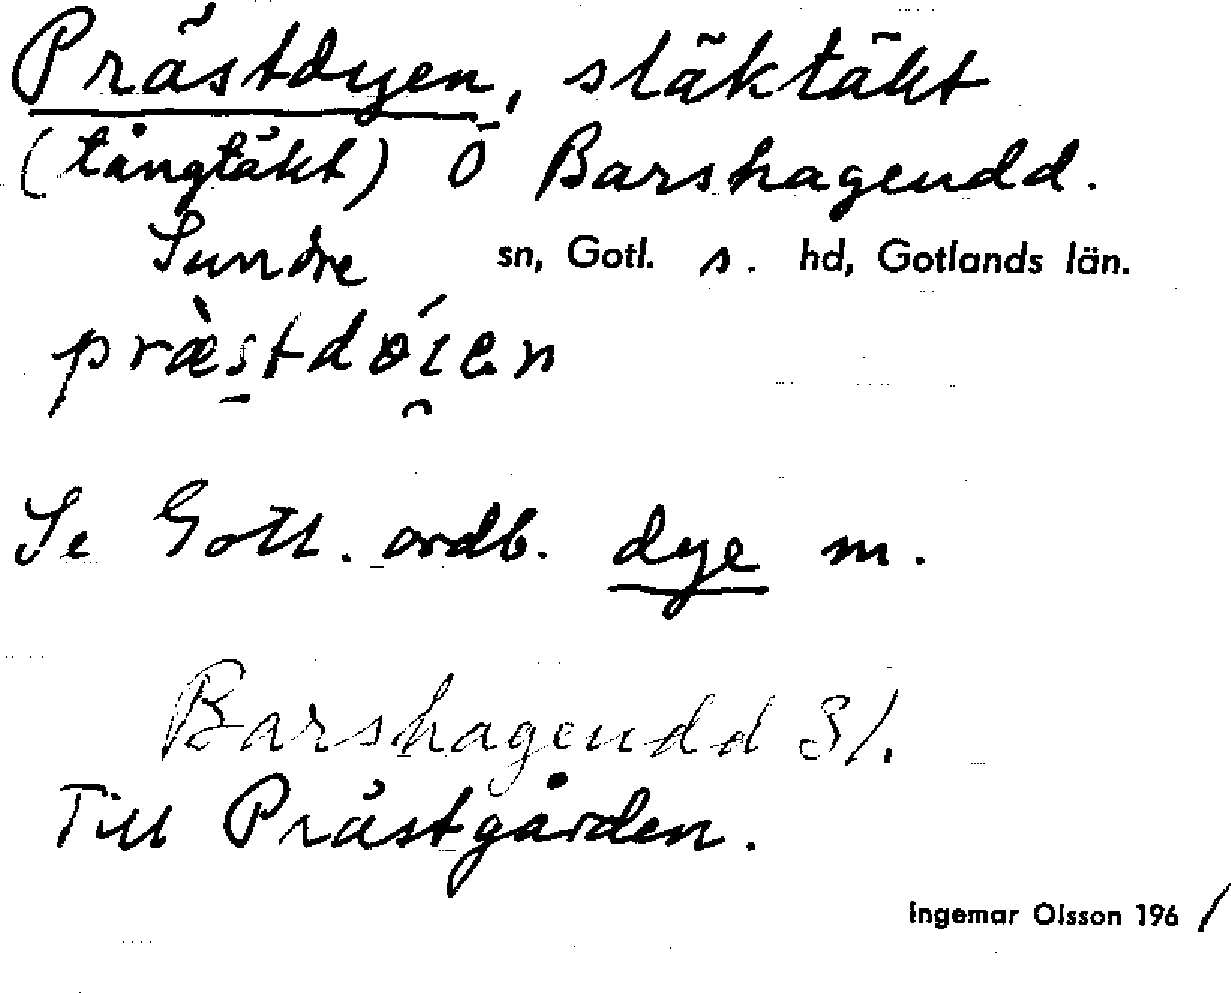 Prästdyen, släktäkt
(tångtäkt) Ö Barshageudd.
Sundre sn, Gotl. s. hd, Gotlands län.
præ̀stdói̯en
Se Gotl. ordb. dye m.
Barshageudd S/.
Till Prästgården.
Ingemar Olsson 1961